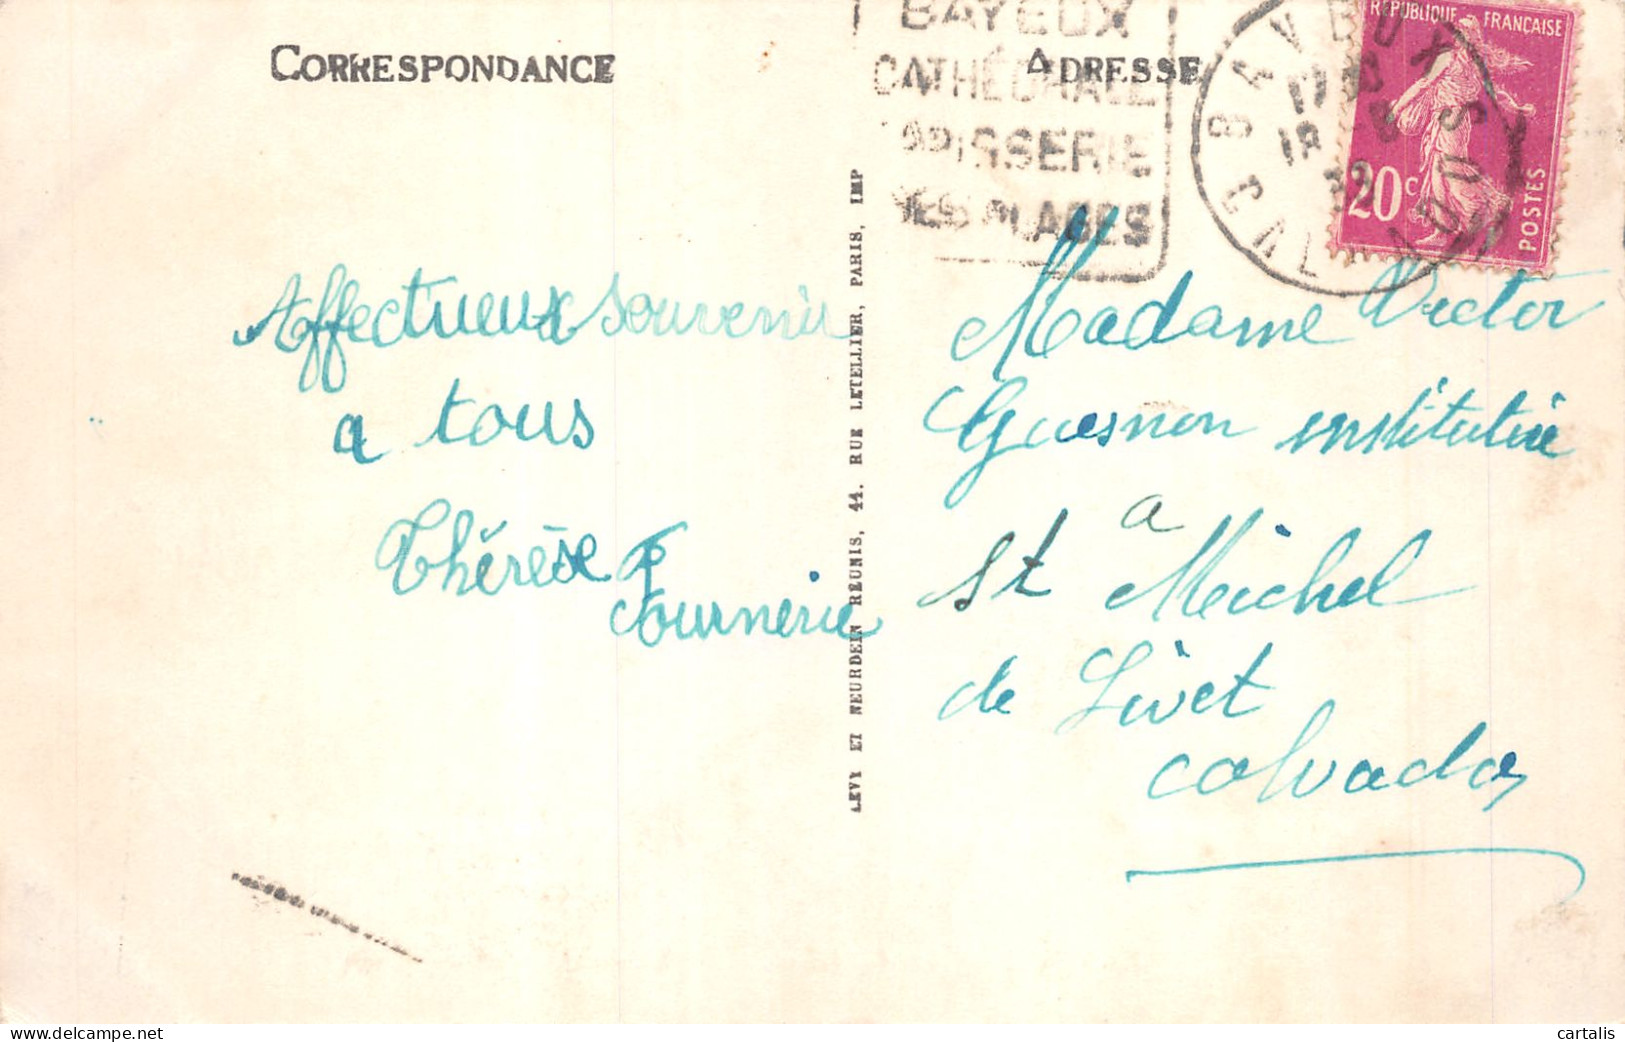 CORRESPONDANCE
ADRESSE
BAYEUX
CATHÉDRALE
TAPISSERIE
SES PLAGES
BAYEUX
CALVADOS
RÉPUBLIQUE FRANÇAISE
20c
POSTES
Affectueux souvenir
a tous
Thérèse
Fournerie
LEVY ET NEURDEIN RÉUNIS, 44. RUE LETELLIER, PARIS, IMP
Madame Victor
Guesnon institutrice
a
St Michel
de Livet
Calvados
cartalis
delcampe.net